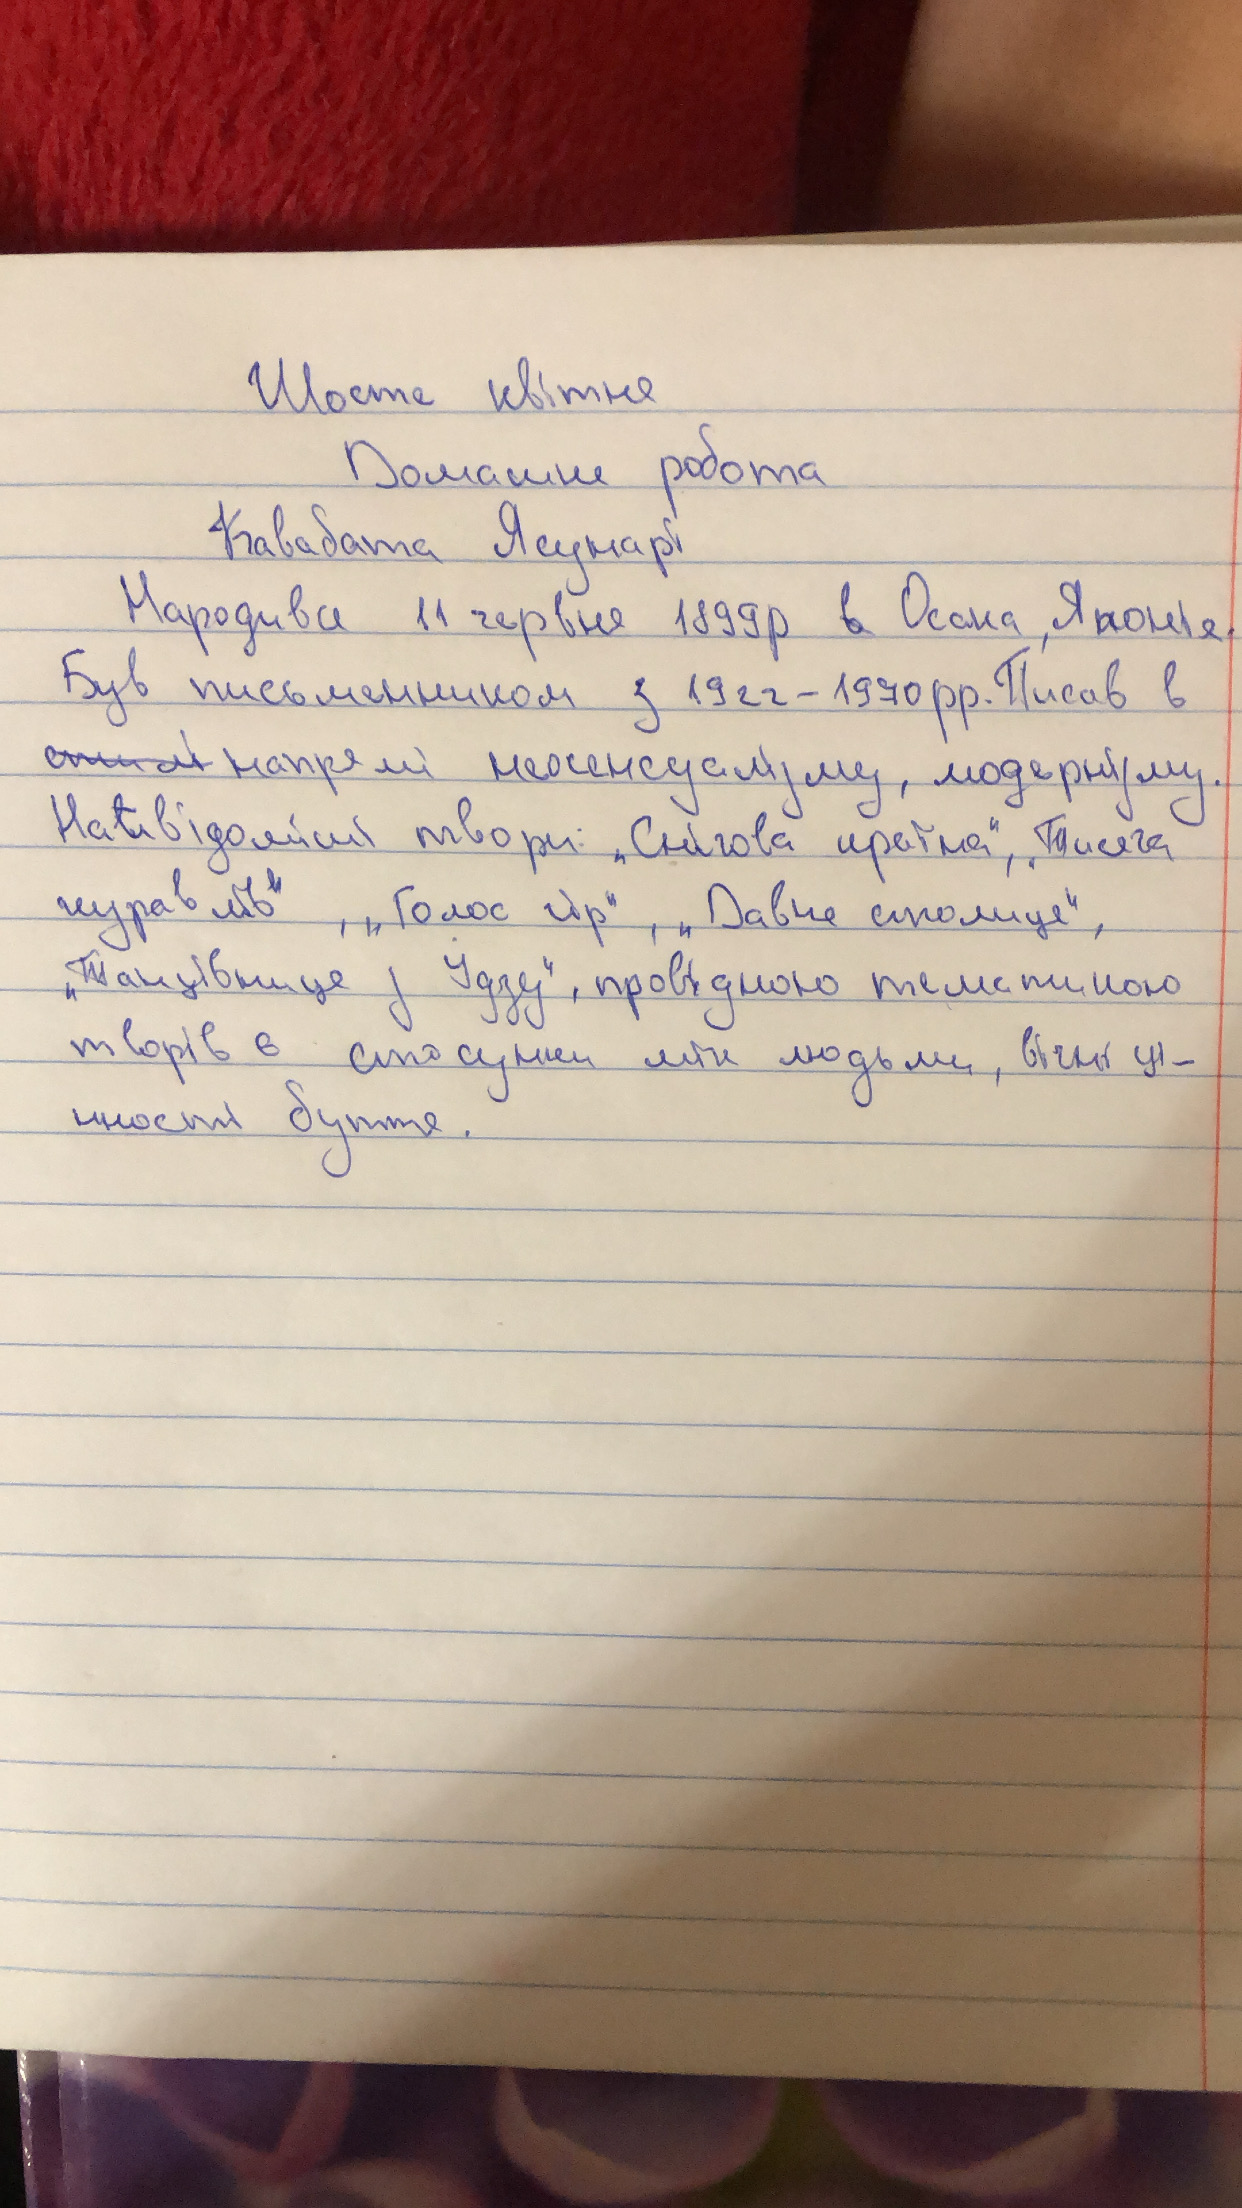 Шосте квітня
Домашня робота
Кавабата Ясунарі
Народився 11 червня 1899р в Осака, Японія.
Був письменником з 1922-1970рр. Писав в
стилі напрямі неосенсуалізму, модернізму.
Найвідоміші твори: „Снігова країна", „Тисяча
журавлів", „Голос гір", „Давня столиця",
„Танцівниця з Ідзу", провідною тематикою
творів є стосунки між людьми, вічні ці-
нності буття.